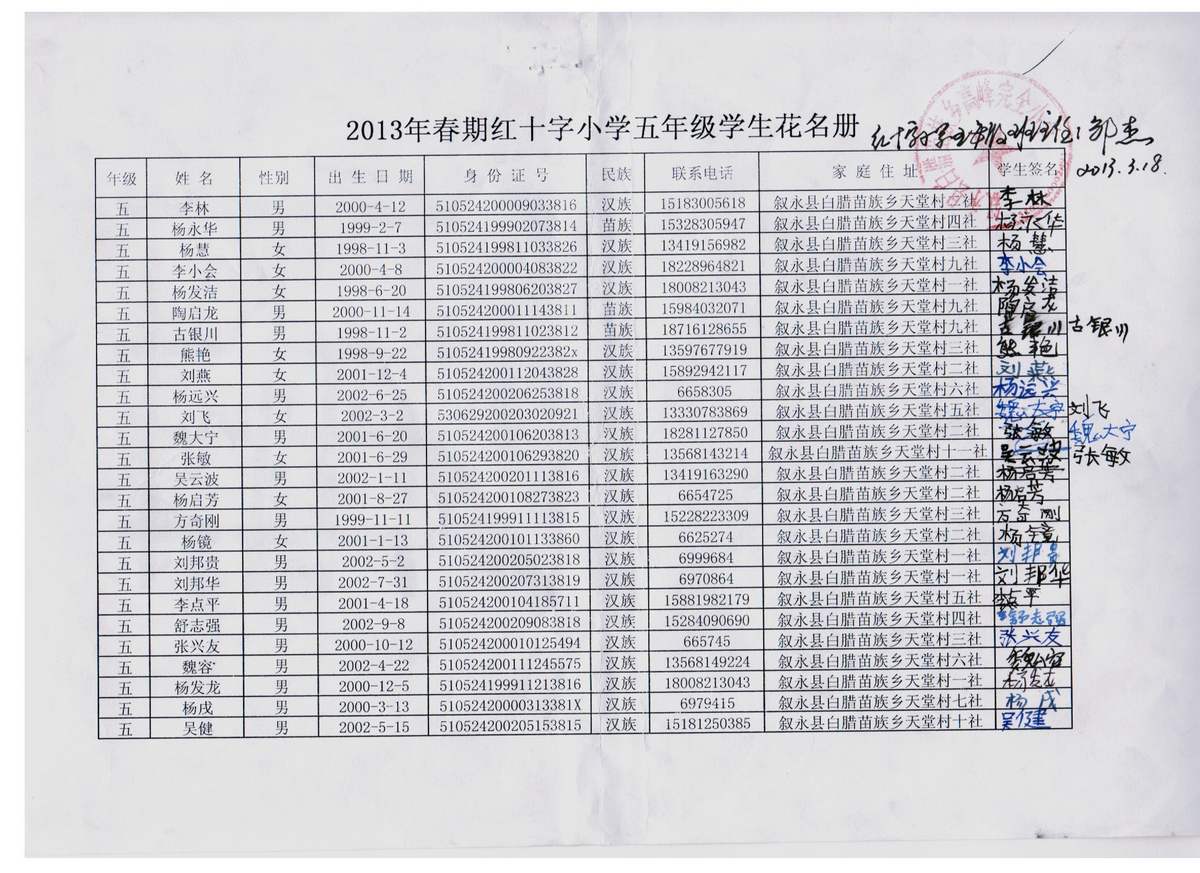 2013年春期红十字小学五年级学生花名册
2013.3.18.
年级 姓名 性别 出生日期 身份证号 民族 联系电话 家庭住址 学生签名
五 李林 男 2000-4-12 510524200009033816 汉族 15183005618 叙永县白腊苗族乡天堂村一社 李林
五 杨永华 男 1999-2-7 510524199902073814 苗族 15328305947 叙永县白腊苗族乡天堂村四社 杨永华
五 杨慧 女 1998-11-3 510524199811033826 汉族 13419156982 叙永县白腊苗族乡天堂村三社 杨慧
五 李小会 女 2000-4-8 510524200004083822 汉族 18228964821 叙永县白腊苗族乡天堂村九社 李小会
五 杨发洁 女 1998-6-20 510524199806203827 汉族 18008213043 叙永县白腊苗族乡天堂村一社 杨发洁
五 陶启龙 男 2000-11-14 510524200011143811 苗族 15984032071 叙永县白腊苗族乡天堂村九社 陶启龙
五 古银川 男 1998-11-2 510524199811023812 苗族 18716128655 叙永县白腊苗族乡天堂村九社 古银川 古银川
五 熊艳 女 1998-9-22 51052419980922382x 汉族 13597677919 叙永县白腊苗族乡天堂村三社 熊艳
五 刘燕 女 2001-12-4 510524200112043828 汉族 15892942117 叙永县白腊苗族乡天堂村二社 刘燕
五 杨远兴 男 2002-6-25 510524200206253818 汉族 6658305 叙永县白腊苗族乡天堂村六社 杨远兴
五 刘飞 女 2002-3-2 530629200203020921 汉族 13330783869 叙永县白腊苗族乡天堂村五社 魏大宇 刘飞
五 魏大宁 男 2001-6-20 510524200106203813 汉族 18281127850 叙永县白腊苗族乡天堂村二社 张敏 魏大宁
五 张敏 女 2001-6-29 510524200106293820 汉族 13568143214 叙永县白腊苗族乡天堂村十一社 吴云波 张敏
五 吴云波 男 2002-1-11 510524200201113816 汉族 13419163290 叙永县白腊苗族乡天堂村二社 杨启芳
五 杨启芳 女 2001-8-27 510524200108273823 汉族 6654725 叙永县白腊苗族乡天堂村二社 杨启芳
五 方奇刚 男 1999-11-11 510524199911113815 汉族 15228223309 叙永县白腊苗族乡天堂村三社 方奇刚
五 杨镜 女 2001-1-13 510524200101133860 汉族 6625274 叙永县白腊苗族乡天堂村二社 杨镜
五 刘邦贵 男 2002-5-2 510524200205023818 汉族 6999684 叙永县白腊苗族乡天堂村一社 刘邦贵
五 刘邦华 男 2002-7-31 510524200207313819 汉族 6970864 叙永县白腊苗族乡天堂村一社 刘邦华
五 李点平 男 2001-4-18 510524200104185711 汉族 15881982179 叙永县白腊苗族乡天堂村五社
五 舒志强 男 2002-9-8 510524200209083818 汉族 15284090690 叙永县白腊苗族乡天堂村四社 舒志强
五 张兴友 男 2000-10-12 510524200010125494 汉族 665745 叙永县白腊苗族乡天堂村三社 张兴友
五 魏容 男 2002-4-22 510524200111245575 汉族 13568149224 叙永县白腊苗族乡天堂村六社 魏容
五 杨发龙 男 2000-12-5 510524199911213816 汉族 18008213043 叙永县白腊苗族乡天堂村一社 杨发龙
五 杨戌 男 2000-3-13 51052420000313381X 汉族 6979415 叙永县白腊苗族乡天堂村七社 杨戌
五 吴健 男 2002-5-15 510524200205153815 汉族 15181250385 叙永县白腊苗族乡天堂村十社 吴健